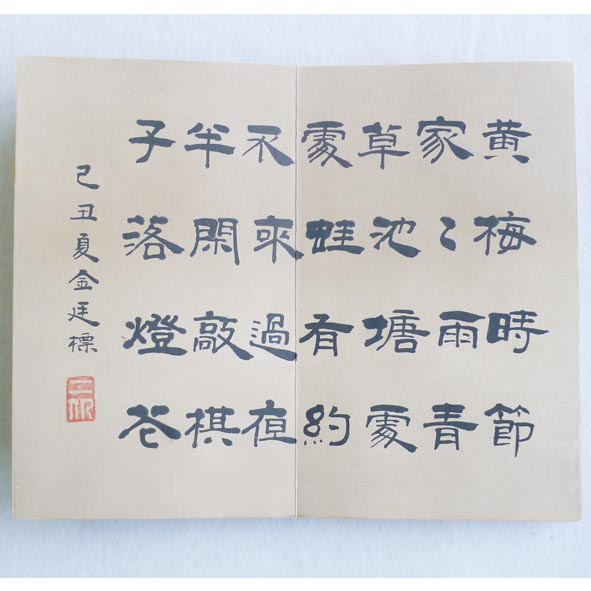 黄梅時節
家〻雨青
草池塘處
處蛙有約
不來過亱
半閑敲棋
子落燈花
己丑夏金廷標